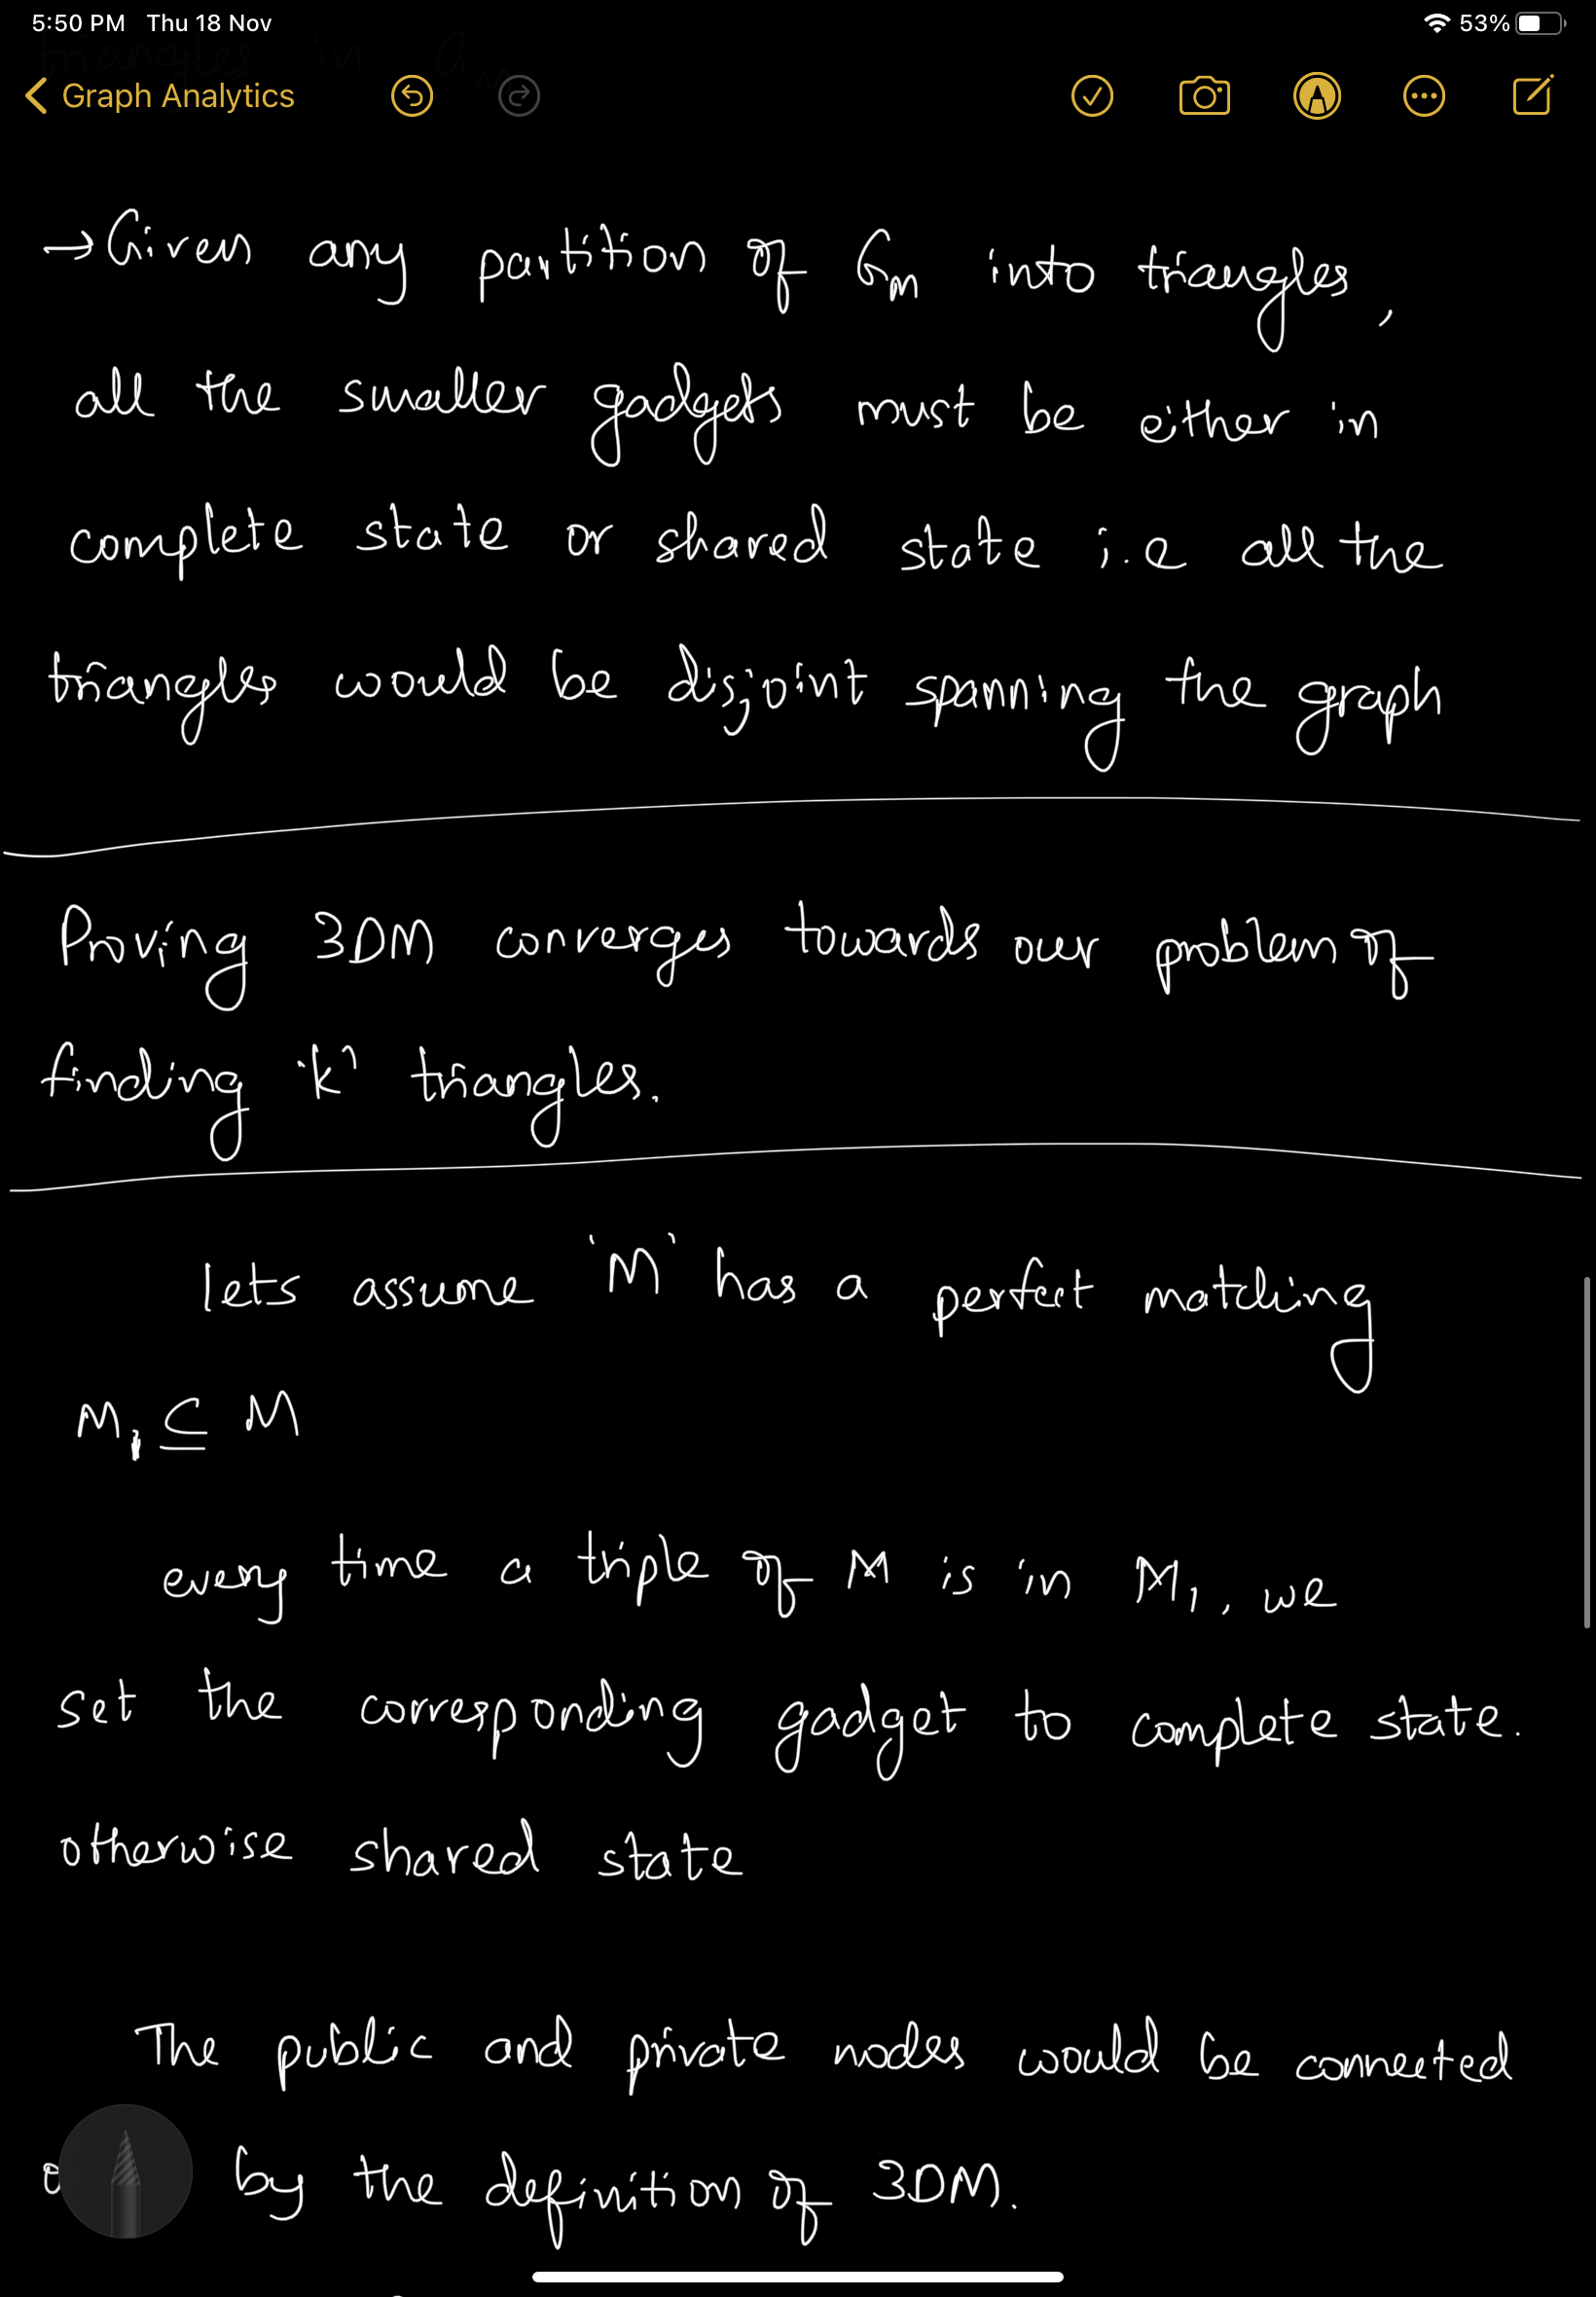 5:50 PM Thu 18 Nov
53%
triangles in G
Graph Analytics
→ Given any partition of Gm into triangles,
all the smaller gadgets must be either in
complete state or shared state i.e all the
triangles would be disjoint spanning the graph
Proving 3DM converges towards our problem of
finding 'k' triangles.
lets assume 'M' has a perfect matching
M₁ ⊆ M
every time a triple of M is in M₁, we
set the corresponding gadget to complete state.
otherwise shared state
The public and private nodes would be connected
by the definition of 3DM.